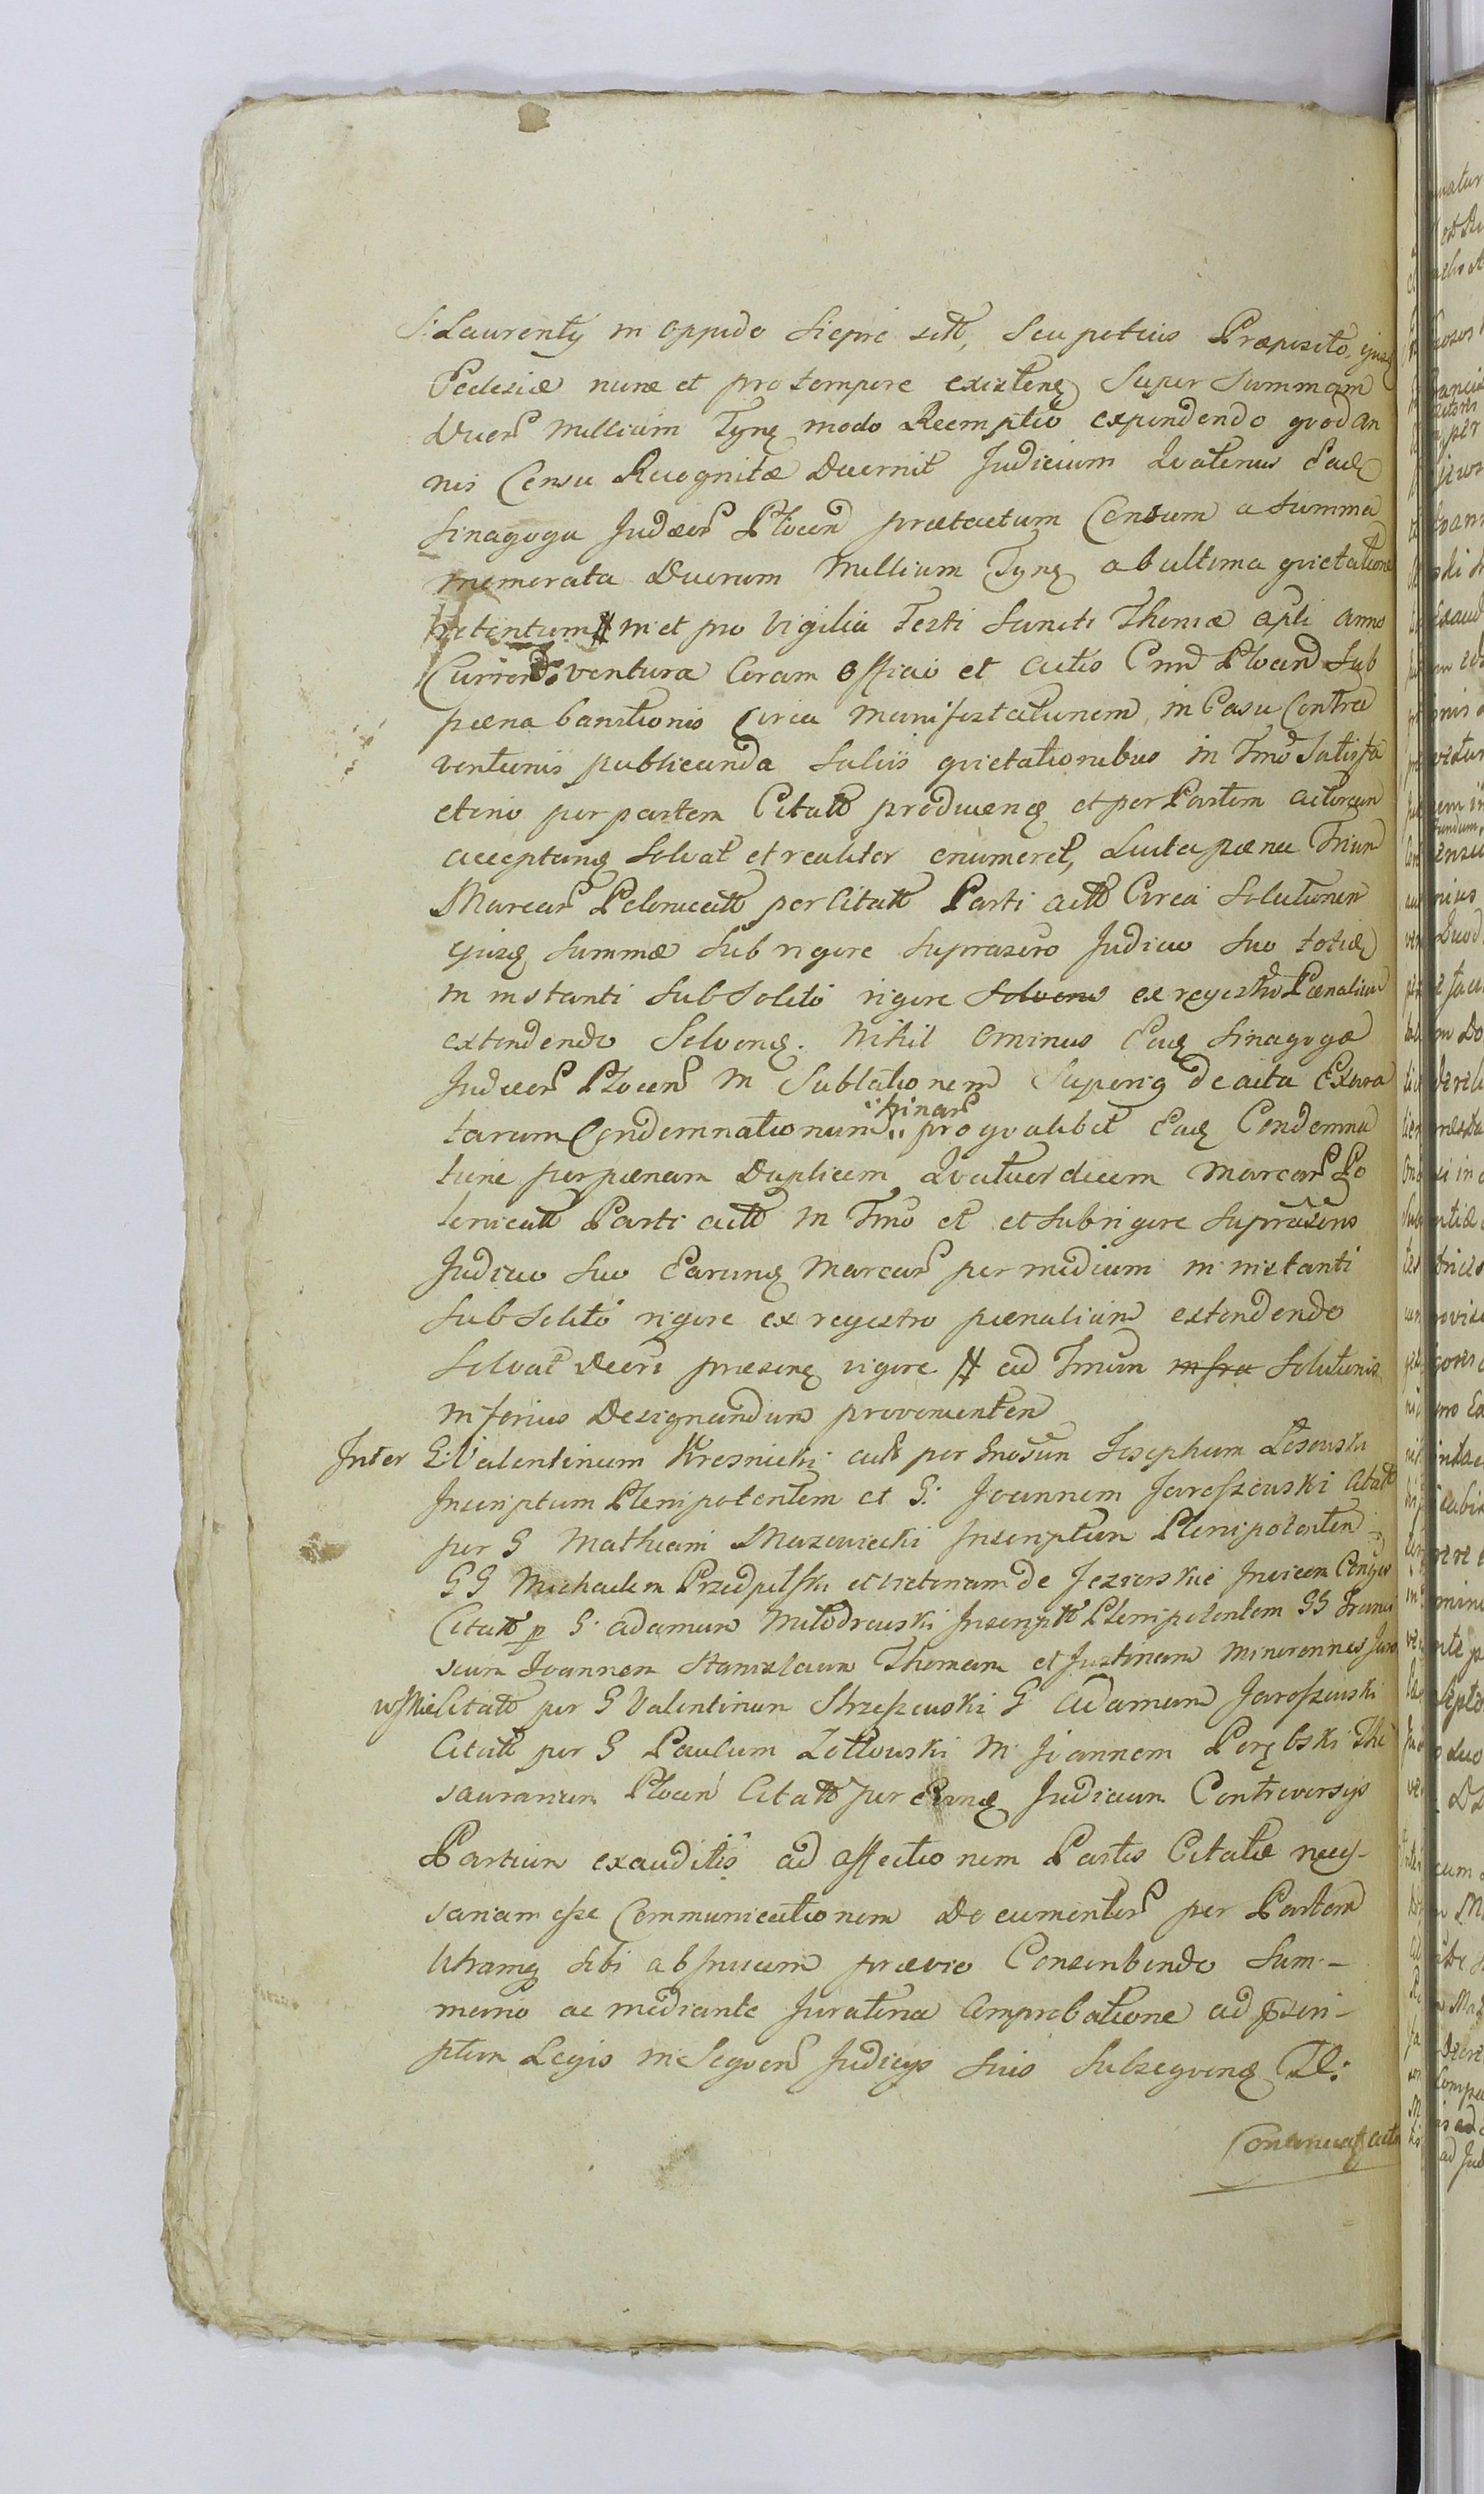 S: Laurentij in oppido Sieprc sitt, Seu potius Præposito, ejusq
Ecclesiæ nunc et pro tempore existenq Super Summam
Duor Millium Tynq modo Reemptio expendendo qvodan
nis Censu Recognitæ Decernit Judicium Qvatenus Eadq
Sinagoga Judæor Plocen prætactum Censum a Summa
memorata Duorum Millium Tynq ab ultima qvietatione
retentum in et pro Vigilia Festi Sancti Thomæ apli anno
Curren ventura Coram Officio et actis Cnri Plocen Sub
pæna banitionis Circa Manifestationem in Casu Contra
ventionis publicanda Salvis qvietationibus in Tmo Satisfa
ctino per partem Citatt producenq et per Partem actoream
acceptanq Solvat et realiter enumeret, Luita pæna Trium
Marcar Polonicatt per Citatt Parti actt Circa Solutionem
ejusq Summæ Sub rigore Suprascro Judicio Suo totieq
in instanti Sub Solito rigore Solvens ex regestro Pænalium
extendendo Solvenq. Nihil ominus Eadq Sinagoga
Judæor Plocen in Sublationem Superiq de acta Exara
tarum Condemnationum binar pro qvalibet Eadq Condemna
tione per pænam Duplicem Qvatuordecim Marcar Po
lonicatt Parti actt in Tmo et et Sub rigore Suprascens
Judicio Suo Earunq Marcar per medium in instanti
Sub Solito rigore ex regestro pænalium extendendo
Solvat Decri præsenq vigore ad Tmum infra Solutionis
inferius Designandum provenientem
Inter G: Valentinum Kresnicki actt per Gnosum Josephum Lesowski
Inscriptum Plenipotentem et G: Joannem Jaroszewski Citatt
per G Mathiam Mazowiecki Inscriptum Plenipotentem
GG Michaelem Przedpelski et Victoriam de Jezierskie Invicem Conjes
Citatt p G: Adamum Miłodrowski Inscriptt Plenipotentem GG Franci
scum Joannem Stanislaum Thomam et Justinam Minorennes Jaro
wskie Citatt per G Valentinum Strzeszewski G Adamum Jaroszewski
Citatt per G Paulum Zółtowski M Joannem Porębski The
saurarium Plocen Citatt per Eunq Judicium Controversijs
Partium exauditis ad affectionem Partis Citatæ neces-
sariam esse Communicationem Documentor per Partem
Utramq Sibi ab Invicem prævio Conscribendo Sum-
mario ac mediante Juratoria Comprobatione ad prscri-
ptum Legis in Seqven Judicijs Suis Subseqvenq Tl:
Communicat acto